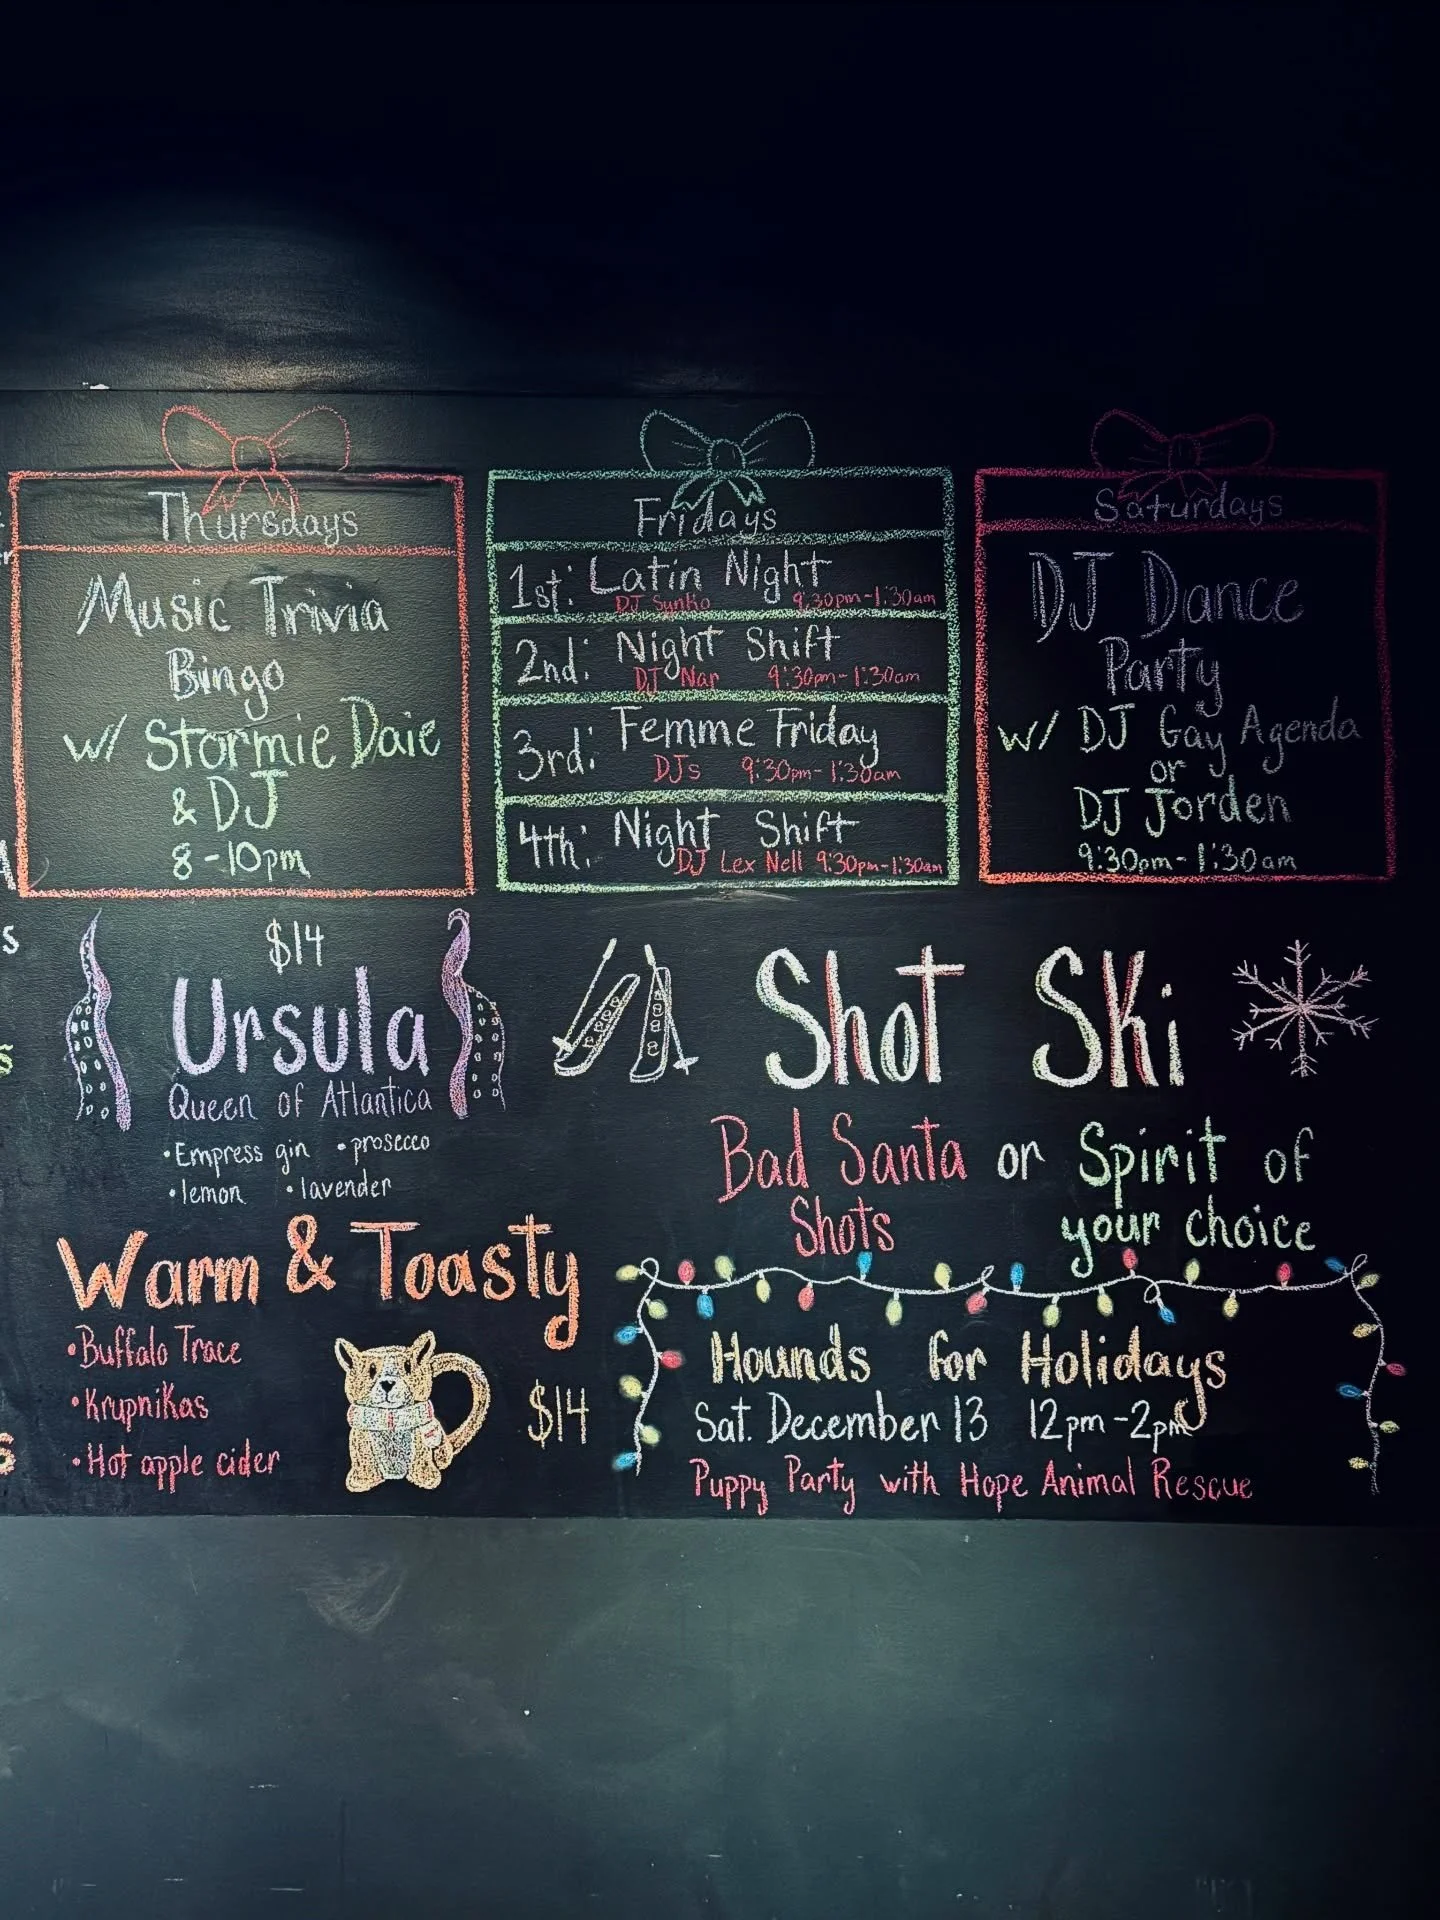 Thursdays
Music Trivia
Bingo
w/ Stormie Daie
& DJ
8-10pm
Fridays
1st: Latin Night
DJ Synko 9:30pm-1:30am
2nd: Night Shift
DJ Nar 9:30pm-1:30am
3rd: Femme Friday
DJs 9:30pm-1:30am
4th: Night Shift
DJ Lex Nell 9:30pm-1:30am
Saturdays
DJ Dance
Party
w/ DJ Gay Agenda
or
DJ Jorden
9:30pm-1:30am
$14
Ursula
Queen of Atlantica
• Empress gin • prosecco
• lemon • lavender
Shot Ski
Bad Santa or Spirit of
Shots your choice
Warm & Toasty
• Buffalo Trace
• Krupnikas
• Hot apple cider
$14
Hounds for Holidays
Sat. December 13 12pm-2pm
Puppy Party with Hope Animal Rescue